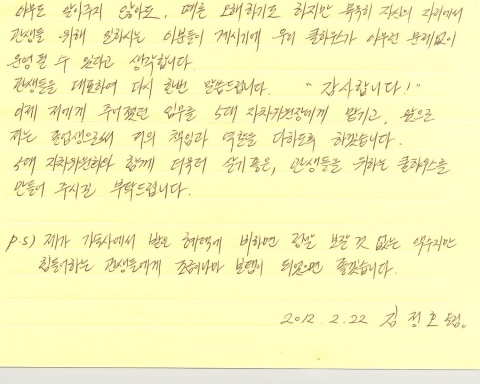 아무도 알아주지 않아도, 때론 오해하기도 하지만 묵묵히 자신의 자리에서
관생들을 위해 일하시는 이분들이 계시기에 우리 클하우스가 아무런 문제없이
운영될 수 있다고 생각합니다.
관생들을 대표하여 다시 한번 말씀드립니다. "감사합니다!"
이제 저에게 주어졌던 임무를 5대 자치위원장에게 맡기고, 앞으로
저는 졸업생으로써 저의 책임과 역할을 다하도록 하겠습니다.
5대 자치위원회와 함께 더욱더 살기 좋은, 관생들을 위하는 클하우스를
만들어 주시길 부탁드립니다.
p.s) 제가 기숙사에서 받은 혜택에 비하면 정말 보잘 것 없는 액수지만
힘들어하는 관생들에게 조금이나마 보탬이 되었으면 좋겠습니다.
2012. 2. 22 김정호